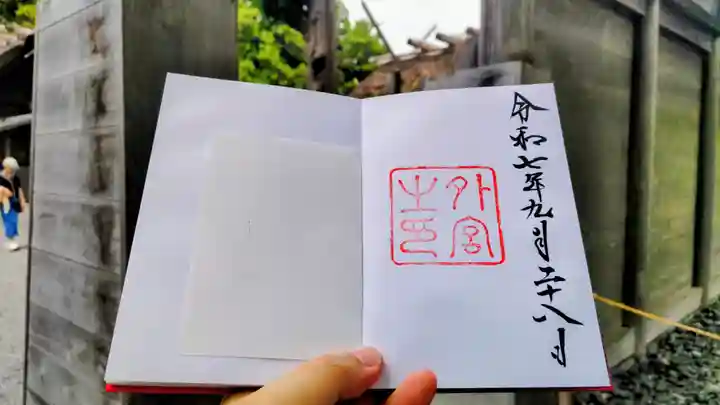 令和七年九月二十八日
外宮
之印